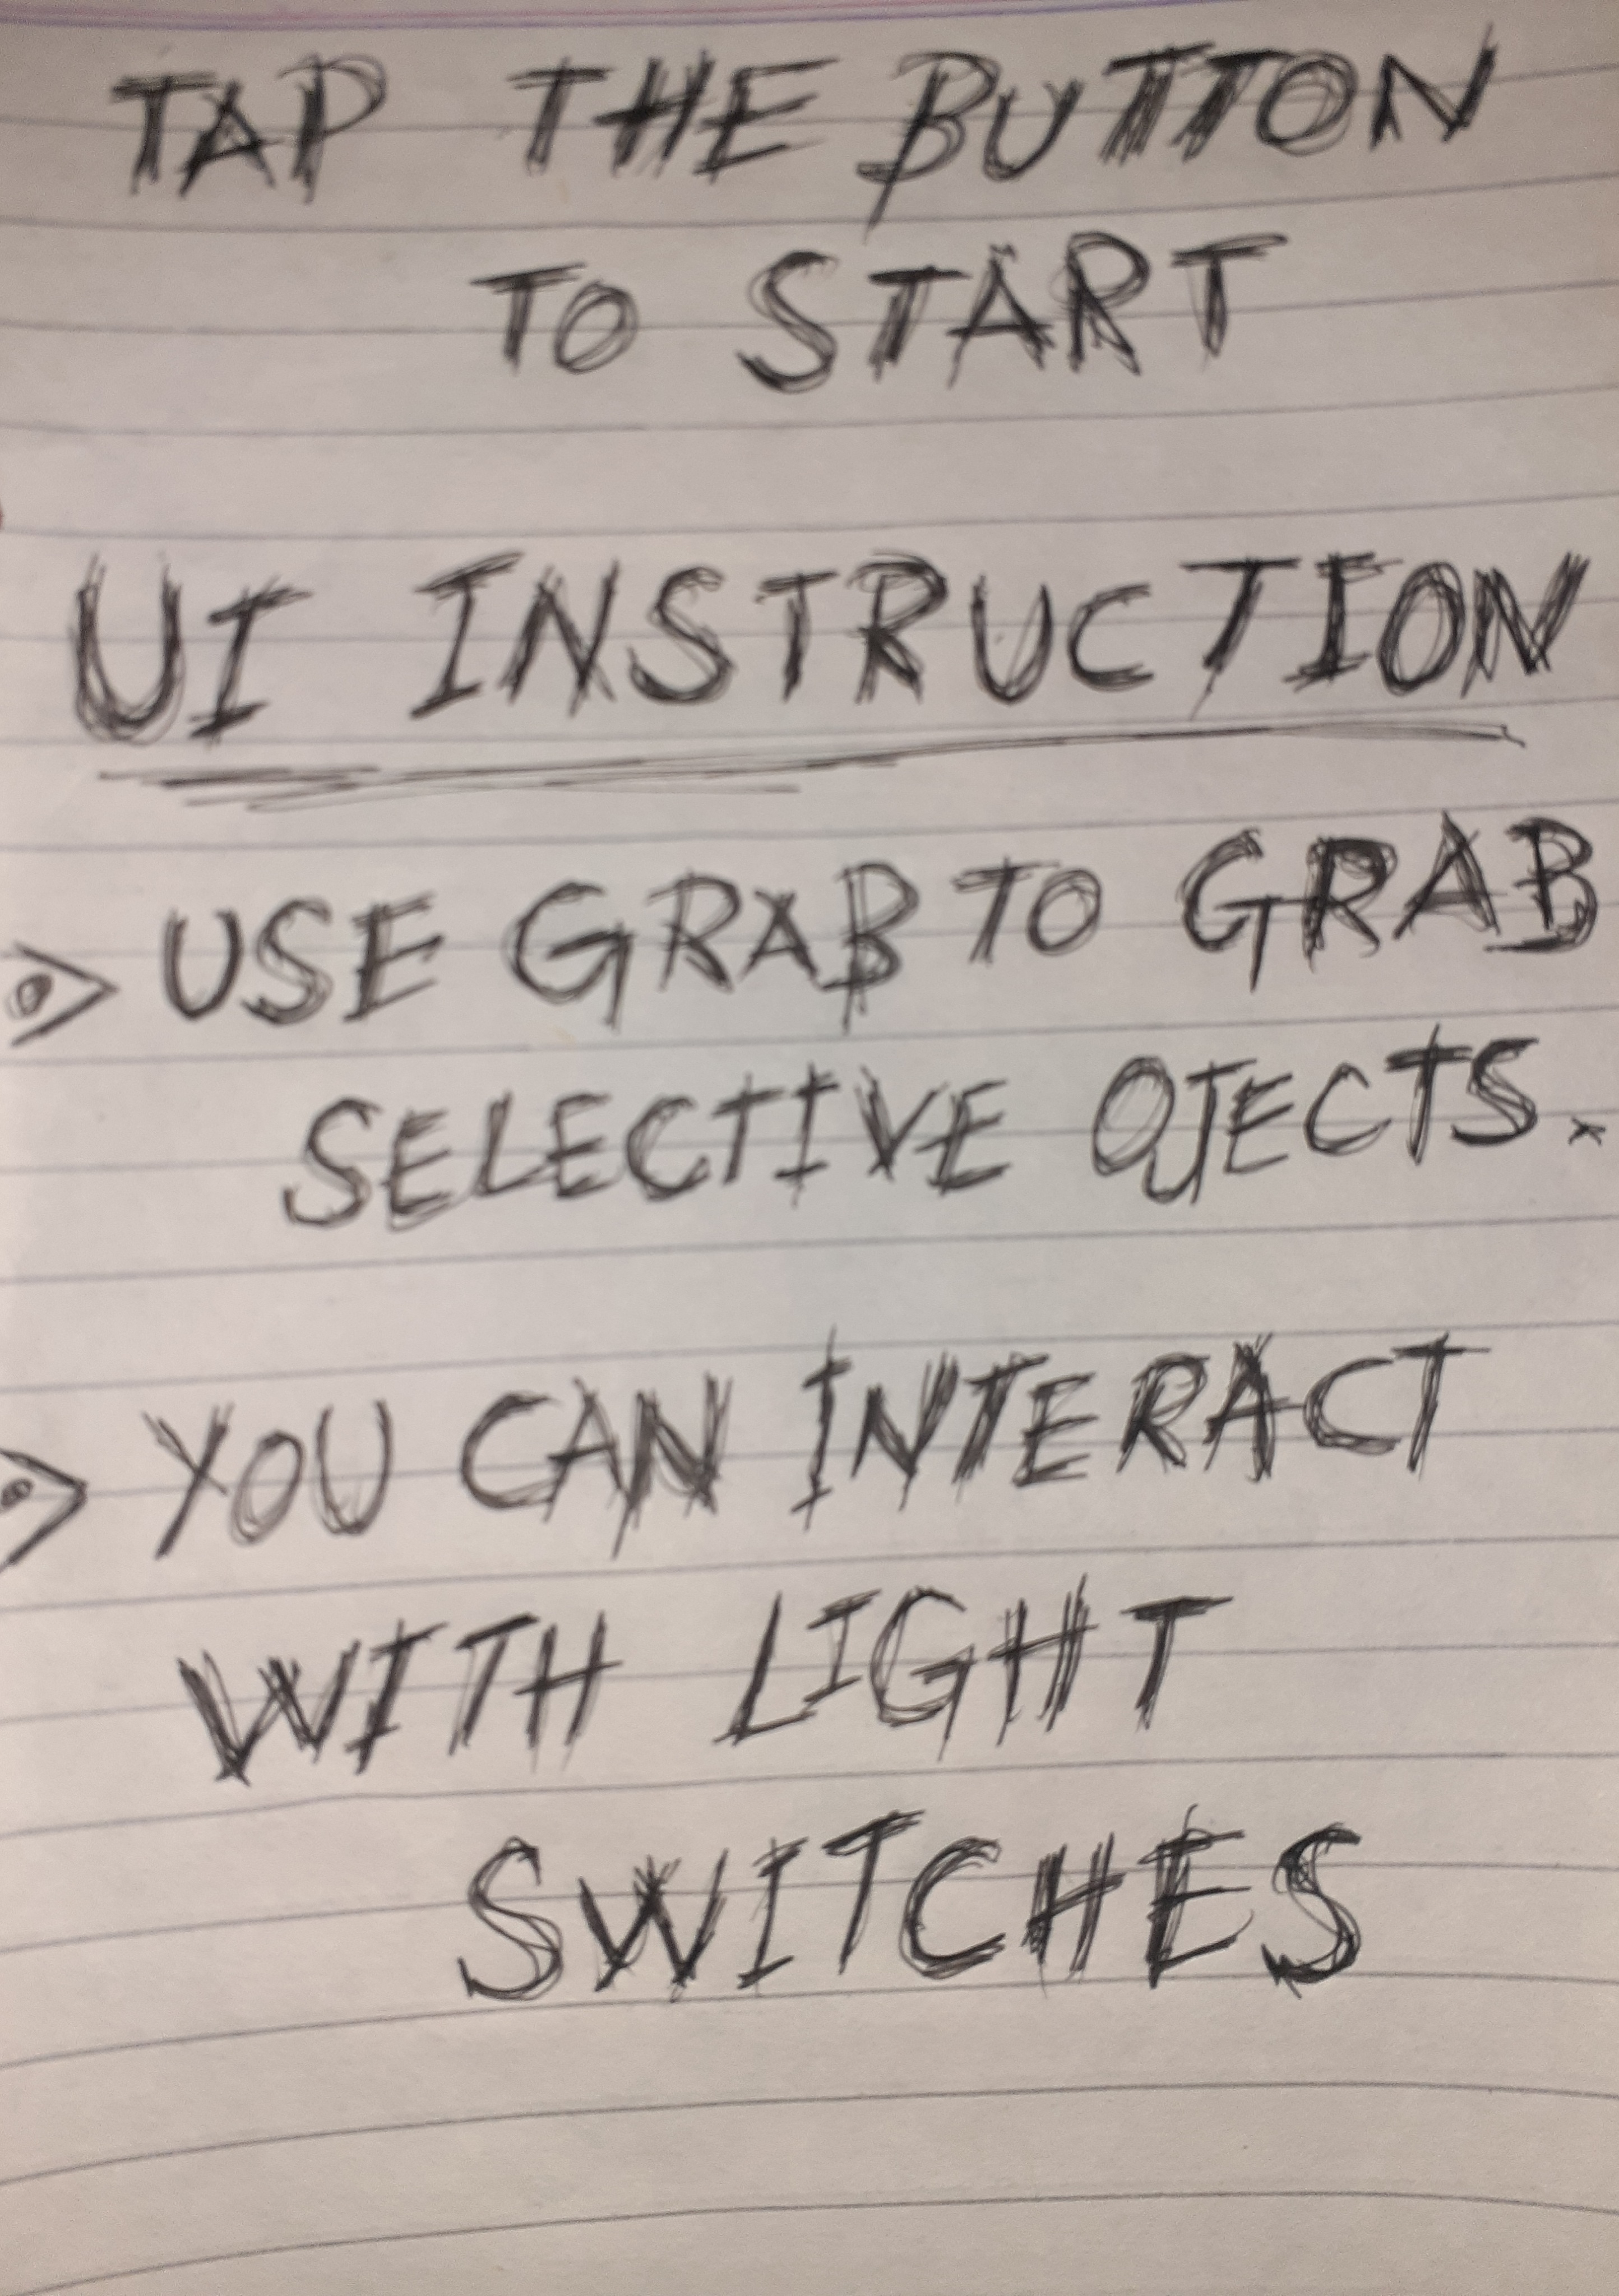 TAP THE BUTTON
TO START
UI INSTRUCTION
> USE GRAB TO GRAB
SELECTIVE OJECTS.
> YOU CAN INTERACT
WITH LIGHT
SWITCHES